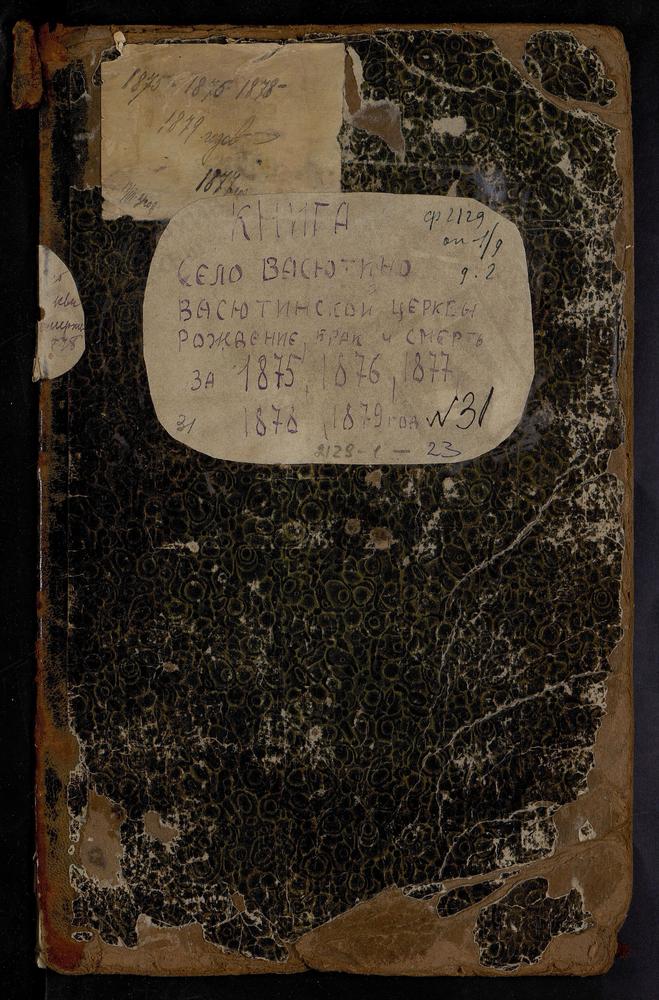 1875 - 1876 1878-
1879 годов
1879
КНИГА
ф 2129
оп-1/9
д. 2
СЕЛО ВАСЮТИНО
ВАСЮТИНСКОЙ ЦЕРКВЫ
РОЖДЕНИЕ, БРАК И СМЕРТЬ
ЗА 1875, 1876, 1877,
31 1878, 1879 ГОД №31
2129-1 — 23